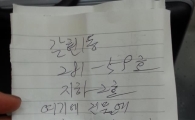 갈현동
281-59호
지하 2호
여기에 건물에